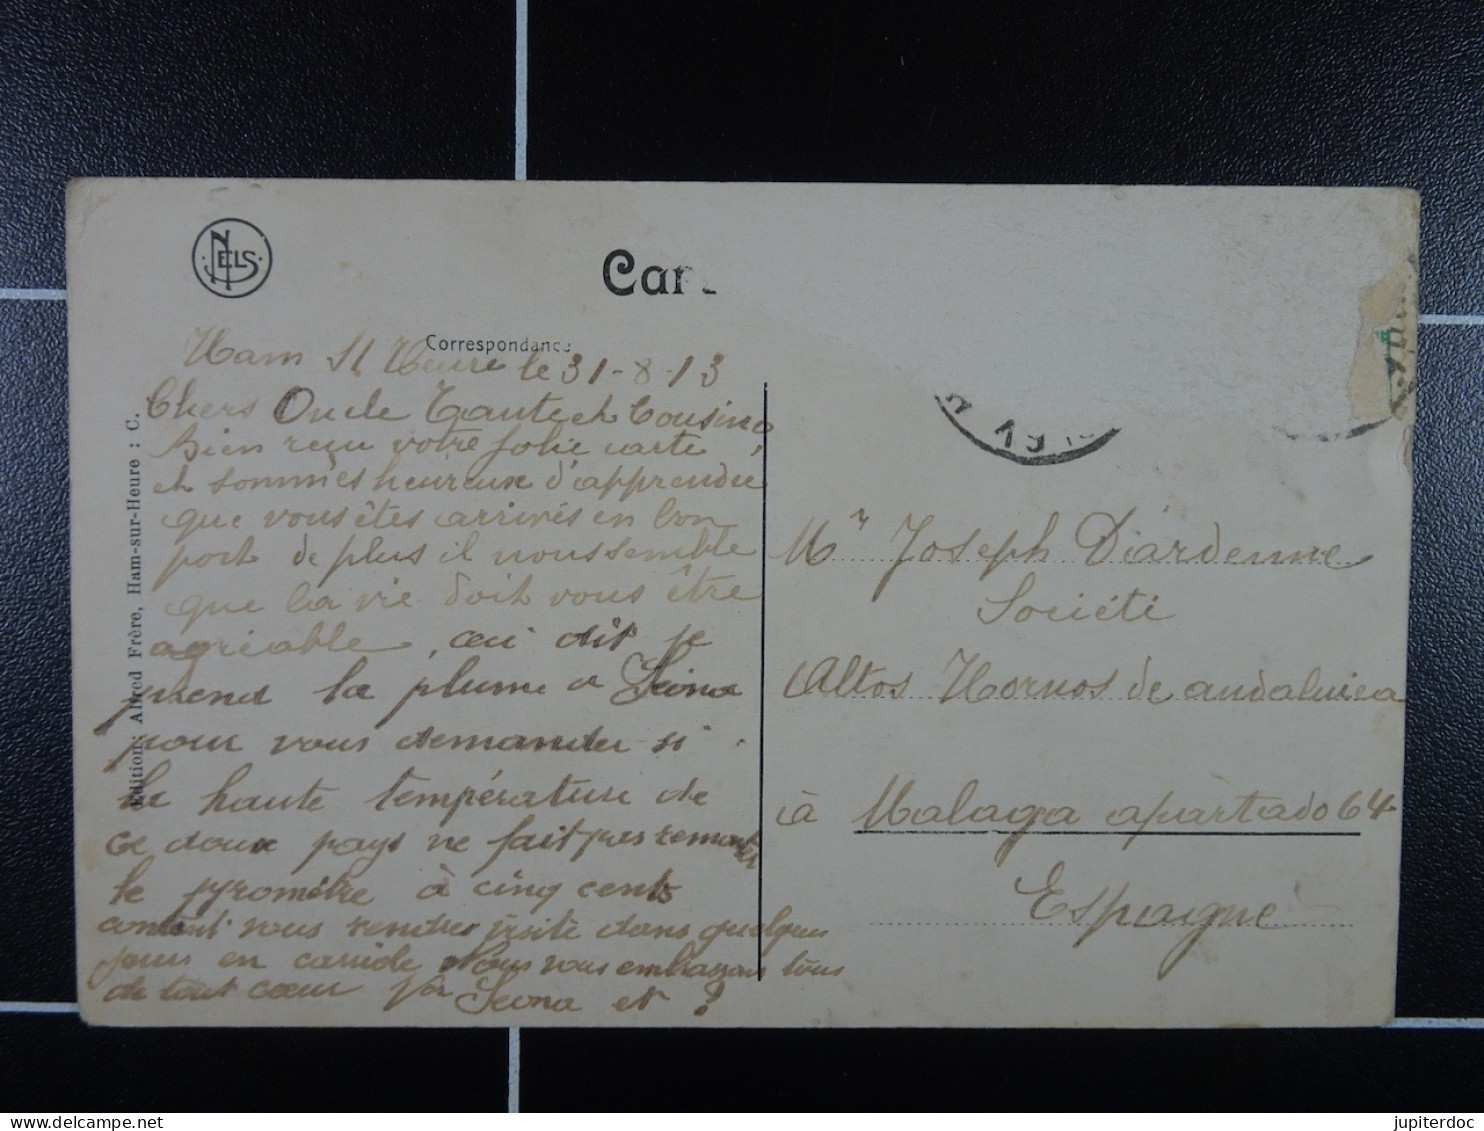 NELS
Car
Correspondance
Ham St Heure le 31-8-13
Chers Oncle Tante et Cousins
Bien reçu votre jolie carte,
et sommes heureux d'apprendre
que vous êtes arrivés en bon
port de plus il nous semble
que la vie doit vous être
agréable, ceci dit je
prend la plume a Léona
pour vous demander si
la haute température de
ce doux pays ne fait pas remonter
le pyromètre à cinq cents
vous rendre visite dans quelques
jours en Nous vous embrassons tous
de tout cœur Léona et ?
Edition: Alfred Frère, Ham-sur-Heure : C.
Mr Joseph Diardenne
Société
Altos Hornos de andalucia
à Malaga apartado 64
Espagne
jupiterdoc